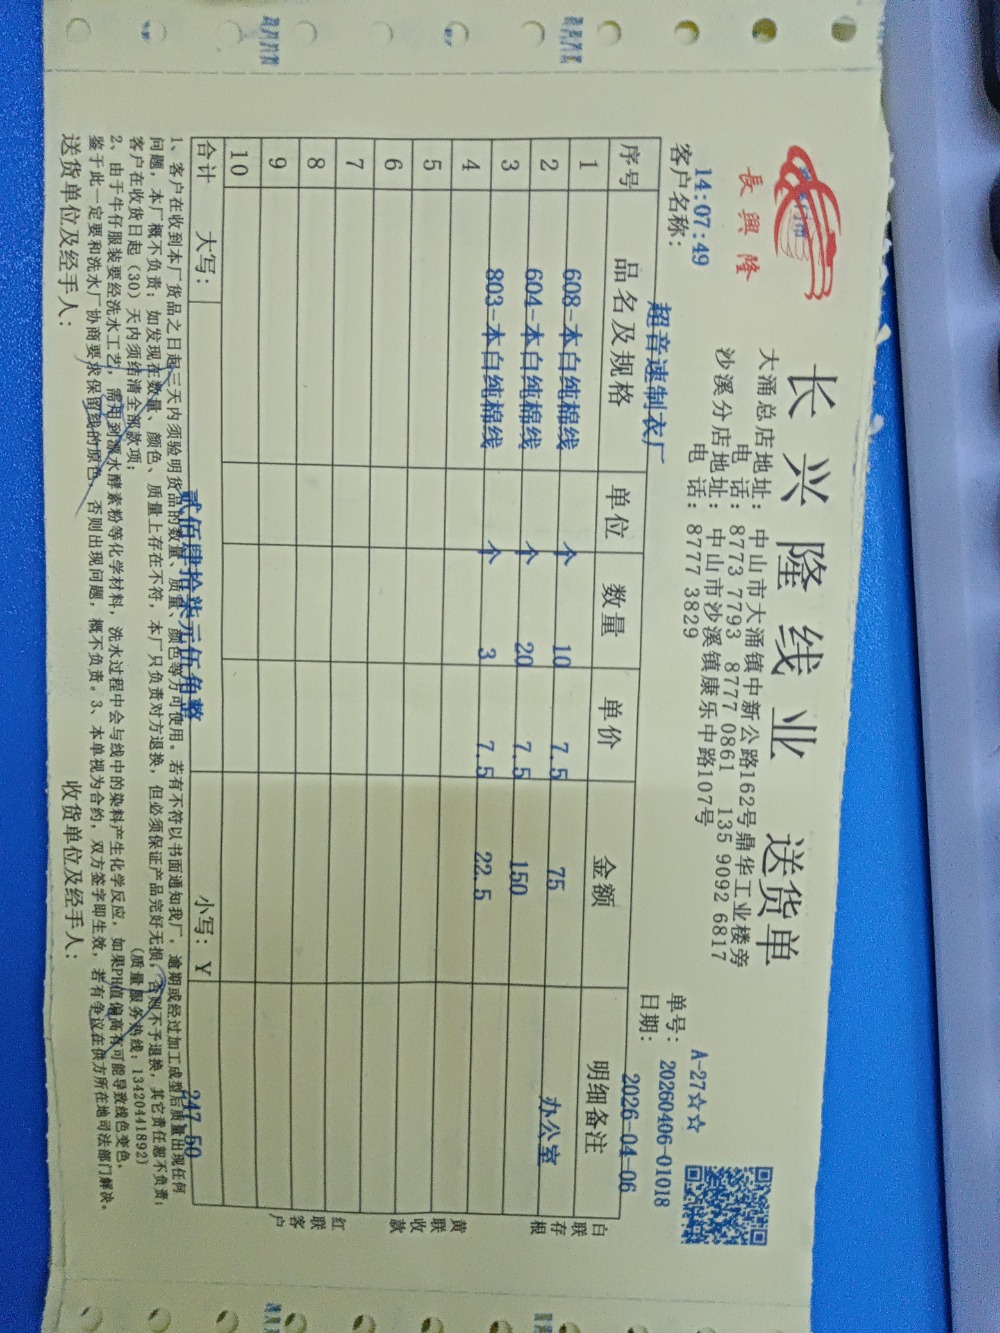 長興隆
长兴隆线业 送货单
大涌总店地址: 中山市大涌镇中新公路162号鼎华工业楼旁
电 话: 8773 7793 8777 0861 135 9092 6817
沙溪分店地址: 中山市沙溪镇康乐中路107号
电 话: 8777 3829
A-27☆☆
14:07:49
单号: 20260406-01018
客户名称: 超音速制衣厂
日期: 2026-04-06
序号 品名及规格 单位 数量 单价 金额 明细备注
1 608-本白纯棉线 个 10 7.5 75 办公室
2 604-本白纯棉线 个 20 7.5 150
3 803-本白纯棉线 个 3 7.5 22.5
4
5
6
7
8
9
10
合计 大写: 贰佰肆拾柒元伍角整 小写: ¥ 247.50
白联存根
黄联收款
红联客户
1、客户在收到本厂货品之日起三天内须验明货品的数量、质量、颜色等方可使用。若有不符以书面通知我厂, 逾期或经过加工成型后质量出现任何
问题, 本厂概不负责; 如发现在数量、颜色、质量上存在不符, 本厂只负责对方退换, 但必须保证产品完好无损, 否则不予退换, 其它责任恕不负责;
客户在收货日起(30)天内须结清全部款项; (质量服务热线: 13420441892)
2、由于牛仔服装要经洗水工艺, 需用到漂水酵素粉等化学材料, 洗水过程中会与线中的染料产生化学反应, 如果PH值偏高有可能导致线色变色,
鉴于此一定要和洗水厂协商要求保留线的原色, 否则出现问题, 概不负责。3、本单视为合约, 双方签字即生效, 若有争议在供方所在地司法部门解决。
送货单位及经手人: 收货单位及经手人: